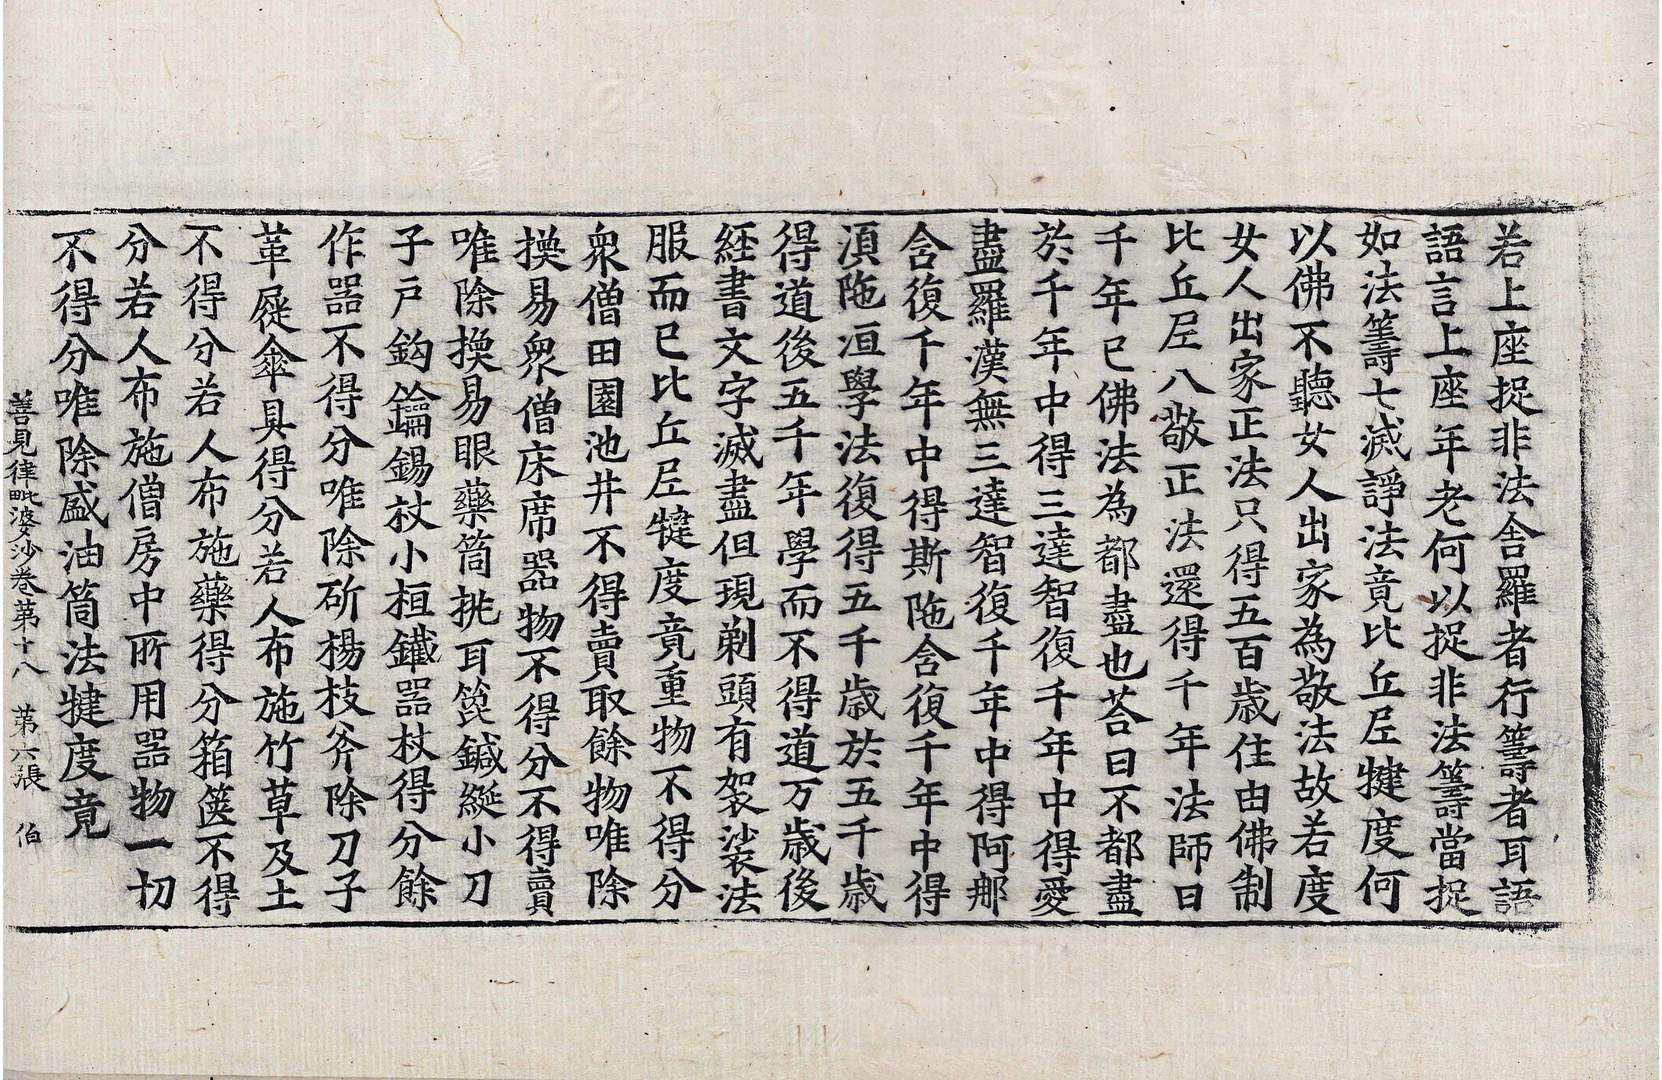 若上座捉非法舍羅者行籌者耳語
語言上座年老何以捉非法籌當捉
如法籌七滅諍法竟比丘尼犍度何
以佛不聽女人出家為敬法故若度
女人出家正法只得五百歲住由佛制
比丘尼八敬正法還得千年法師曰
千年已佛法為都盡也荅曰不都盡
於千年中得三達智復千年中得愛
盡羅漢無三達智復千年中得阿那
含復千年中得斯陁含復千年中得
湏陁洹學法復得五千歲於五千歲
得道後五千年學而不得道万歲後
経書文字滅盡但現剃頭有袈裟法
服而已比丘尼犍度竟重物不得分
衆僧田園池井不得賣取餘物唯除
換易衆僧床席器物不得分不得賣
唯除換易眼藥筒挑耳篦鍼綖小刀
子戶鈎鑰錫杖小桓鐵器杖得分餘
作器不得分唯除斫楊枝斧除刀子
革屣傘具得分若人布施竹草及土
不得分若人布施藥得分箱篋不得
分若人布施僧房中所用器物一切
不得分唯除盛油筒法犍度竟
善見律毗婆沙卷第十八　第六張　伯